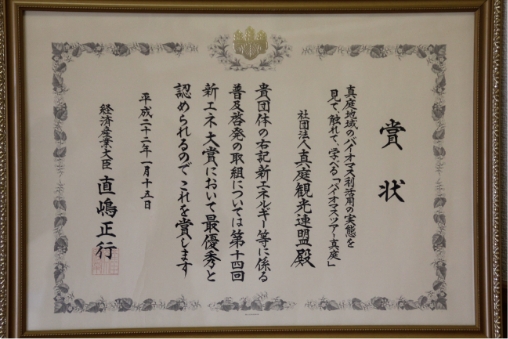 賞状
真庭地域のバイオマス利活用の実態を
見て、触れて、学べる「バイオマスツアー真庭」
社団法人真庭観光連盟殿
貴団体の右記新エネルギー等に係る
普及啓発の取組については第十四回
新エネ大賞において最優秀と
認められるのでこれを賞します
平成二十二年一月十五日
経済産業大臣 直嶋正行